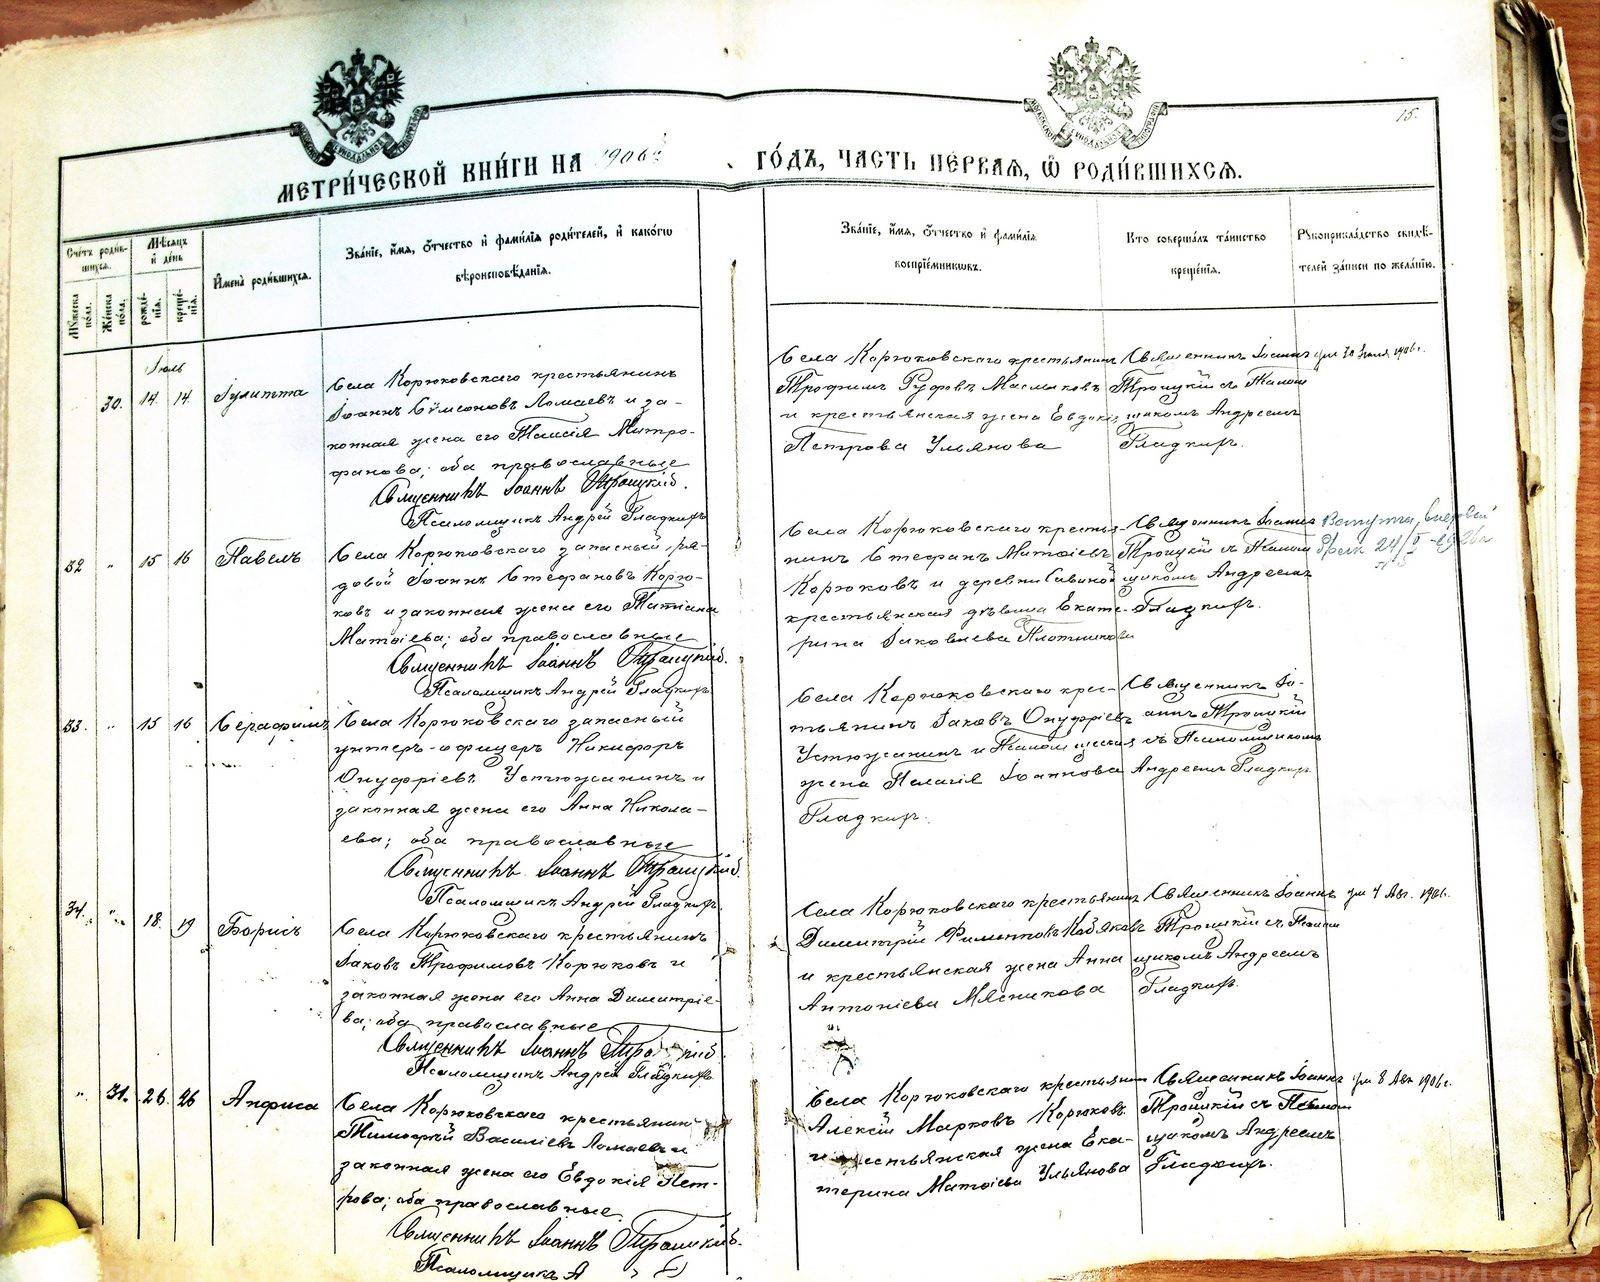 15.
МЕТРИ́ЧЕСКОЙ КНИ́ГИ НА 1906й ГО́ДЪ, ЧАСТЬ ПЕ́РВАЯ, Ѿ РОДИ́ВШИХСЯ.
Сче́тъ роди́в-
шихся.
Му́жеска по́ла.
Же́нска по́ла.
Мѣ́сяцъ
и де́нь
рожде́-
нїя.
креще́-
нїя.
Имена̀ роди́вшихся.
Зва́нїе, и́мя, о́тчество и фами́лїя роди́телей, и како́гѡ
вѣроисповѣ́данїя.
Зва́нїе, и́мя, о́тчество и фами́лїя
воспрїе́мникѡвъ.
Кто соверша́лъ та́инство
креще́нїя.
Рукоприкла́дство свидѣ́-
телей за́писи по жела́нїю.
Іюль
30. 14. 14. Іулитта
Села Корюковскаго крестьянинъ
Іоаннъ Сѵмеоновъ Ломаевъ и за-
конная жена его Таисія Митро-
фанова; оба православные
Священникъ Іоаннъ Троицкій.
Псаломщикъ Андрей Гладкихъ
Села Корюковскаго крестьянинъ
Трофимъ Руфовъ Масльковъ
и крестьянская жена Евдокія
Петрова Ульянова
Священникъ Іоаннъ
Троицкій съ Псалом
щикомъ Андреемъ
Гладкихъ.
ум 30 Іюля 1906 г.
32 " 15 16 Павелъ
Села Корюковскаго запасный ря-
довой Іоаннъ Стефановъ Корю-
ковъ и законная жена его Татіана
Матѳіева; оба православные
Священникъ Іоаннъ Троицкій.
Псаломщикъ Андрей Гладкихъ
Села Корюковскаго кресть-
нинъ Стефанъ Матѳіевъ
Корюковъ и деревни Савиной
крестьянская дѣвица Екате-
рина Іаковлева Плотникова
Священникъ Іоаннъ
Троицкій съ Псалом
щикомъ Андреемъ
Гладкихъ.
33. " 15 16 Серафимъ
Села Корюковскаго запасный
унтеръ-офицеръ Никифоръ
Онуфріевъ Устюжанинъ и
законная жена его Анна Никола-
ева; оба православные
Священникъ Іоаннъ Троицкій.
Псаломщикъ Андрей Гладкихъ.
Села Корюковскаго крес-
тьянинъ Іаковъ Онуфріевъ
Устюжанинъ и Псаломщеская
жена Пелагія Іоаннова
Гладкихъ.
Священникъ Іо-
аннъ Троицкій
съ Псаломщикомъ
Андреемъ Гладкихъ.
34. " 18. 19 Борисъ
Села Корюковскаго крестьянинъ
Іаковъ Трофимовъ Корюковъ и
законная жена его Анна Димитріе-
ва; оба православные
Священникъ Іоаннъ Троицкій
Псаломщикъ Андрей Гладкихъ
Села Корюковскаго крестьянинъ
Димитрій Филипповъ Кобяковъ
и крестьянская жена Анна
Антоніева Мясникова
Священникъ Іоаннъ
Троицкій съ Псалом
щикомъ Андреемъ
Гладкихъ.
ум 4 Авг. 1906 г.
" 31. 26. 26 Анфиса
Села Корюковскаго крестьянинъ
Тимофей Василіевъ Ломаевъ и
законная жена его Евдокія Пет-
рова; оба православные.
Священникъ Іоаннъ Троицкій.
Псаломщикъ А
Села Корюковскаго крестьянинъ
Алексій Марковъ Корюковъ
и крестьянская жена Ека-
терина Матѳіева Ульянова
Священникъ Іоаннъ
Троицкій съ Псалом
щикомъ Андреемъ
Гладкихъ.
ум 8 Авг 1906 г.